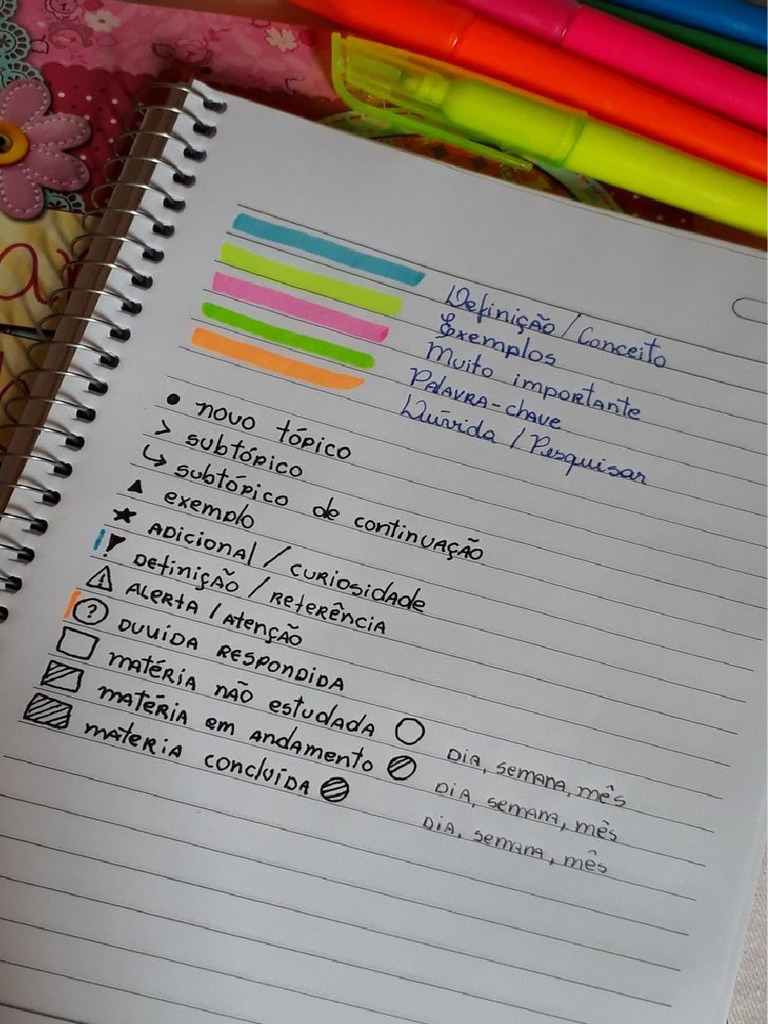 Definição / Conceito
Exemplos
Muito importante
PALAVRA-chave
Dúvida / Pesquisar
novo tópico
subtópico
subtópico de continuação
exemplo
ADICIONAL / CURIOSIDADE
DEFINIÇÃO / REFERÊNCIA
ALERTA / ATENÇÃO
DUVIDA RESPONDIDA
MATÉRIA NÃO ESTUDADA DIA, SEMANA, MÊS
MATÉRIA EM ANDAMENTO DIA, SEMANA, MÊS
MATERIA CONCLUÍDA DIA, SEMANA, MÊS